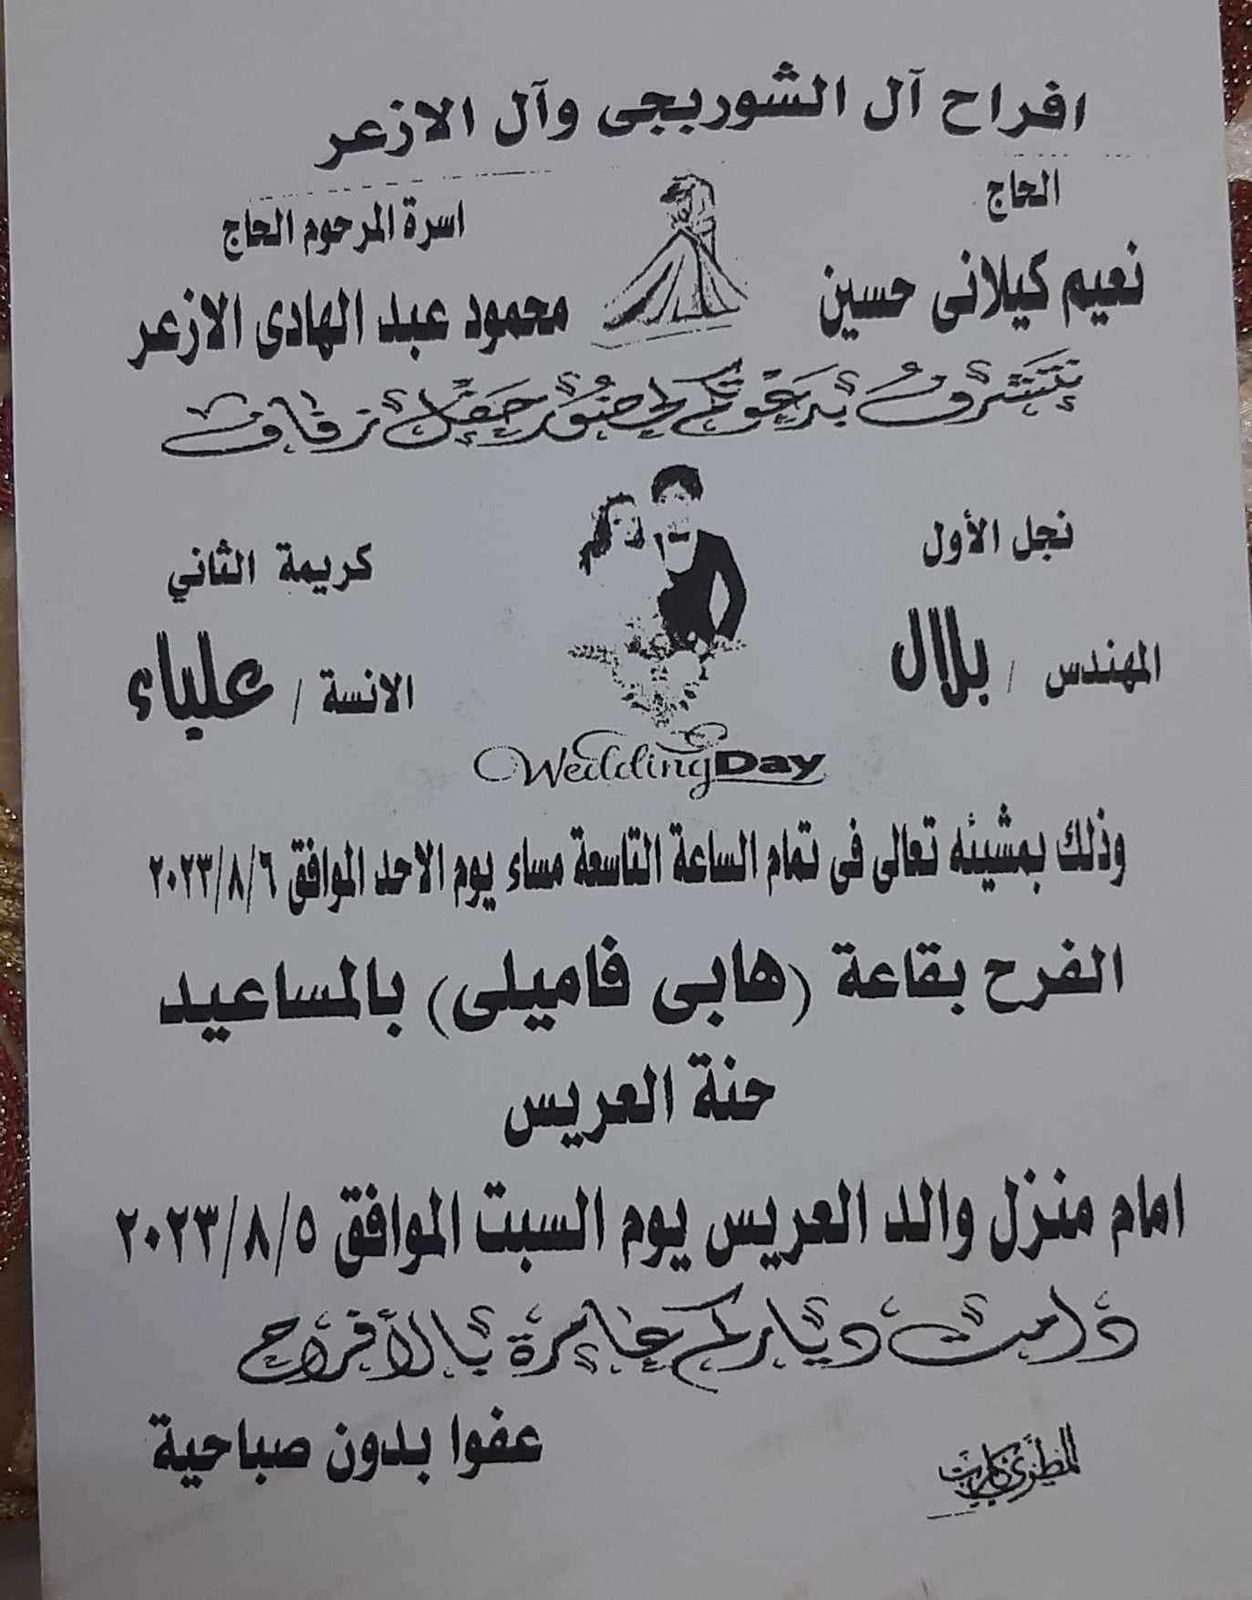 افراح آل الشوربجى وآل الازعر
الحاج
نعيم كيلانى حسين
اسرة المرحوم الحاج
محمود عبد الهادى الازعر
نتشرف بدعوتكم لحضور حفل زفاف
نجل الأول
المهندس / بلال
كريمة الثاني
الانسة / علياء
Wedding Day
وذلك بمشيئه تعالى فى تمام الساعة التاسعة مساء يوم الاحد الموافق ٢٠٢٣/٨/٦
الفرح بقاعة (هابى فاميلى) بالمساعيد
حنة العريس
امام منزل والد العريس يوم السبت الموافق ٢٠٢٣/٨/٥
دامت دياركم عامرة بالأفراح
عفوا بدون صباحية